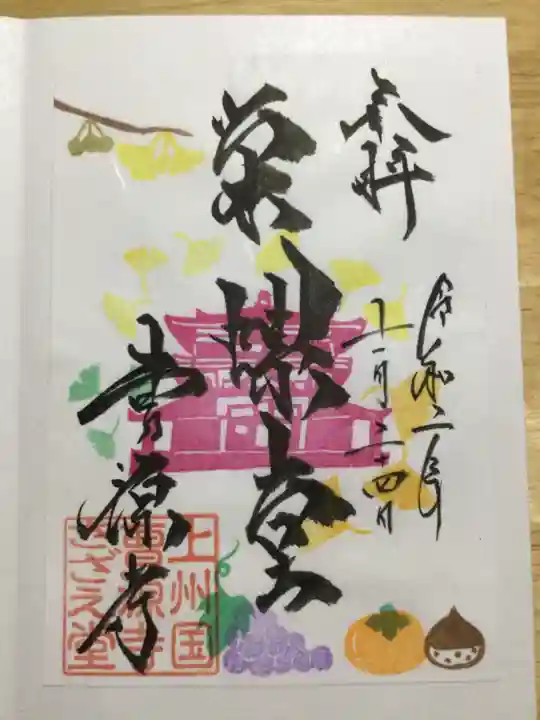 奉拝
令和二年
十一月二十四日
栄螺堂
曹源寺
上州国
曹源寺